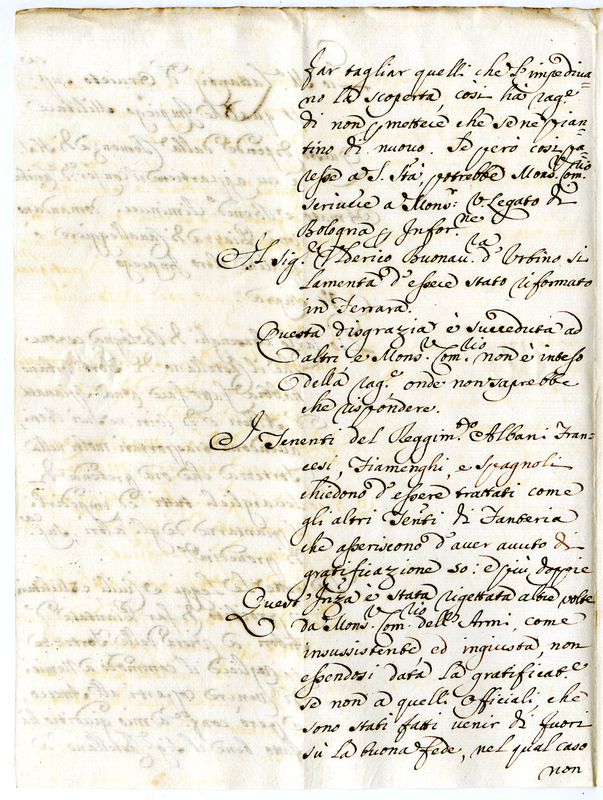 far tagliar quelli che s'impediva-
no la scoperta, così ha rag.e
di non pmettere che se ne pian-
tino di nuovo. Se però così pa-
resse a S. Stà potrebbe Mons.r Com.rio
scrivere a Mons.r V. Legato di
Bologna p Infor.ne
Il Sig.r Olderico Buonav.ra d'Urbino si
lamenta d'essere stato riformato
in Ferrara.
Questa disgrazia è succeduta ad
altri e Mons.r Com.rio non è inteso
della rag.e onde non saprebbe
che rispondere.
I Tenenti del Reggim.to Albani Fran-
cesi, Fiamenghi, e Spagnoli
chiedono d'essere trattati come
gli altri Tenti di Fanteria
che asseriscono d'aver avuto di
gratificazione 50: e più doppie
Quest'Inza è stata rigettata altre volte
da Mons.r Com.rio dell'Armi, come
insussistente ed ingiusta, non
essendosi data la gratificat.e
se non a quelli Officiali, che
sono stati fatti venir di fuori
sù la buona fede, nel qual caso
non